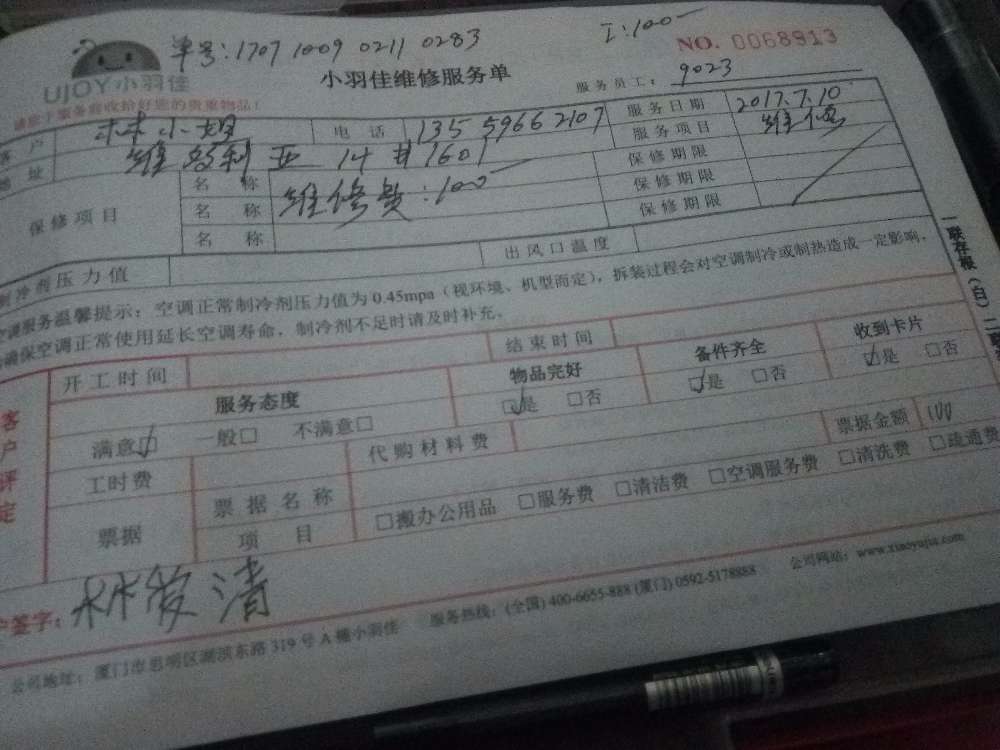 单号:1707 1009 0211 0283
I:100-
NO. 0068913
UJOY小羽佳
小羽佳维修服务单
服务员工: 9023
请您于服务前收拾好您的贵重物品!
客户 林小姐 电话 135 5966 2107 服务日期 2017.7.10
地址 维多利亚 14#1601 服务项目 维修
保修项目
名称 维修费:100- 保修期限
名称 保修期限
名称 保修期限
制冷剂压力值 出风口温度
空调服务温馨提示:空调正常制冷剂压力值为0.45mpa(视环境、机型而定),拆装过程会对空调制冷或制热造成一定影响,
确保空调正常使用延长空调寿命,制冷剂不足时请及时补充。
一联存根(白)二联
客户评定
开工时间 结束时间
服务态度 物品完好 备件齐全 收到卡片
满意☑ 一般□ 不满意□ ☑是 □否 ☑是 □否 ☑是 □否
工时费 代购材料费 票据金额 100
票据 票据名称
项目 □搬办公用品 □服务费 □清洁费 □空调服务费 □清洗费 □疏通费
户签字: 林爱清
公司地址:厦门市思明区湖滨东路319号A幢小羽佳 服务热线:(全国)400-6655-888 (厦门)0592-5178888 公司网站:www.xiaoyujia.com